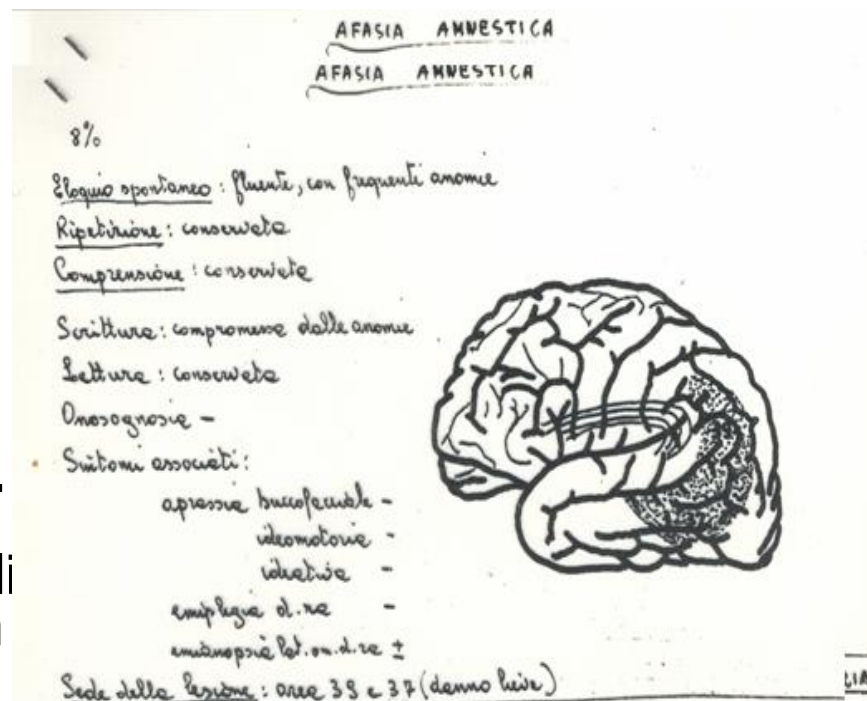 AFASIA AMNESTICA
AFASIA AMNESTICA
8%
Eloquio spontaneo: fluente, con frequenti anomie
Ripetizione: conservata
Comprensione: conservata
Scrittura: compromessa dalle anomie
Lettura: conservata
Anosognosia -
Sintomi associati:
aprassia buccofacciale -
ideomotoria -
ideativa -
emiplegia d.ra -
emianopsia lat. om. d. ra ±
Sede della lesione: area 39 e 37 (danno lieve)